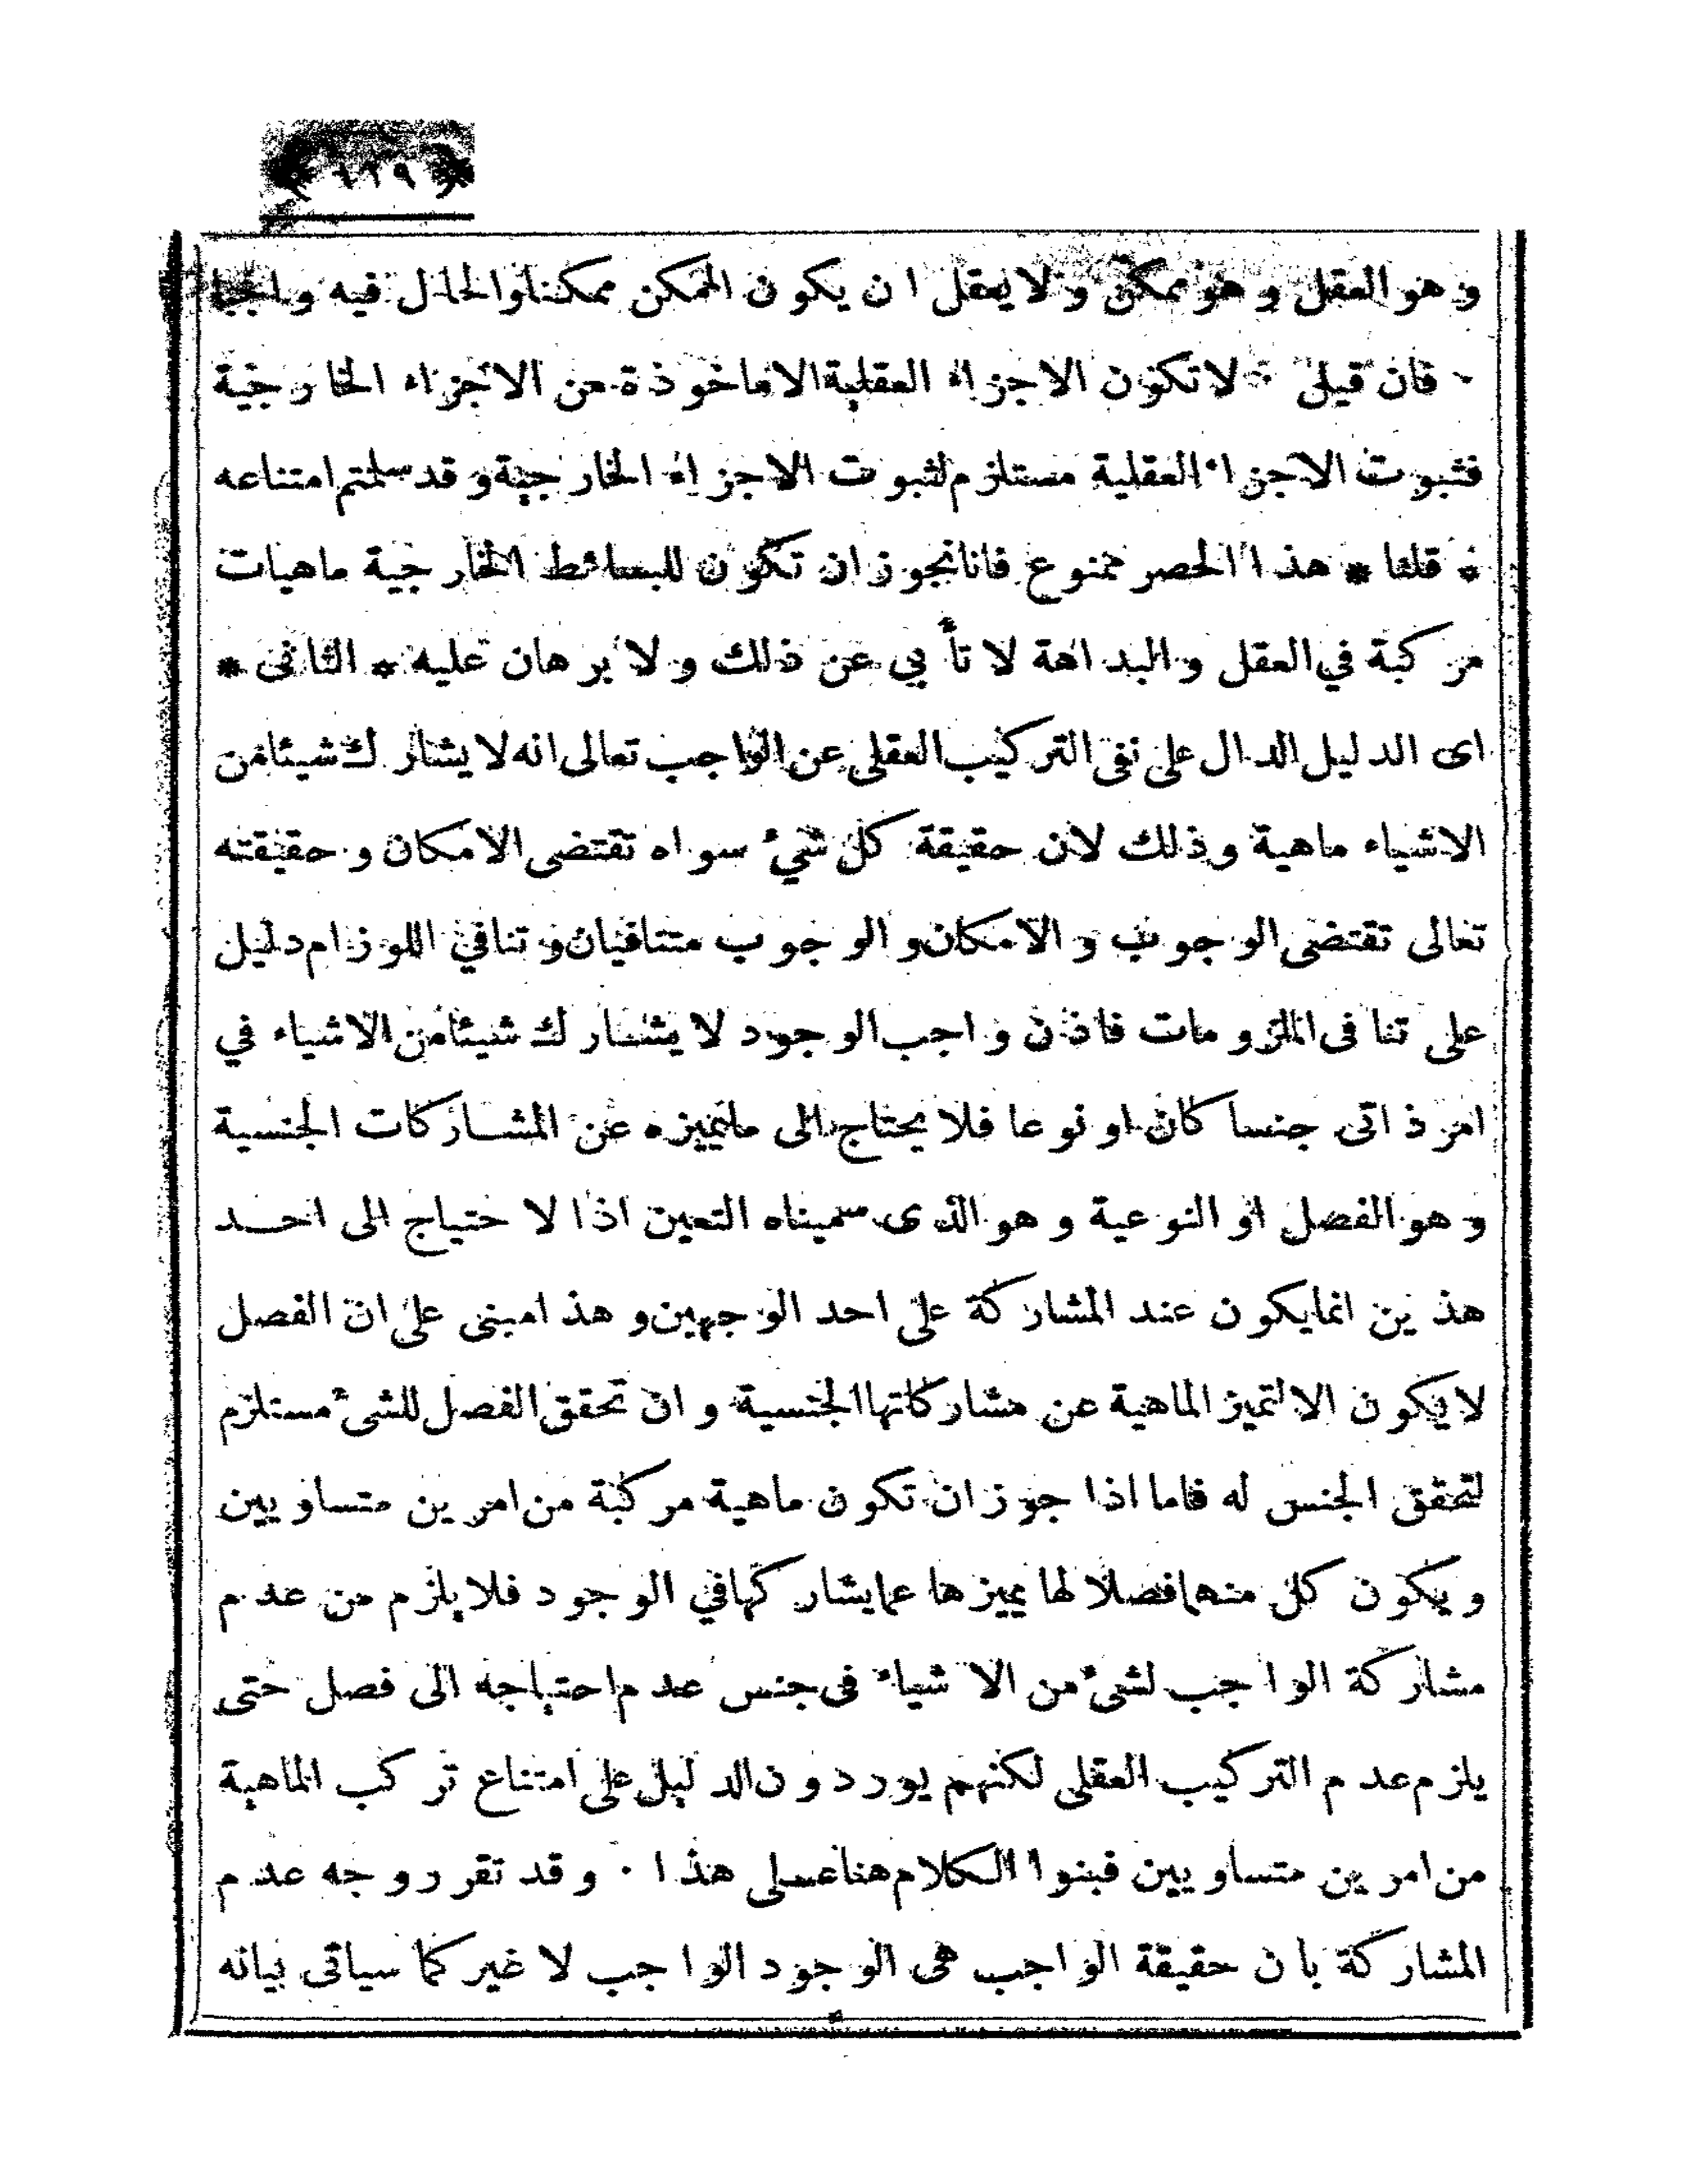 وهو العقل وهو ممكن ولا يعقل ان يكون الممكن ممكنا والحال فيه واجبا
فان قيل * لا تكون الاجزاء العقلية الا ماخوذة من الاجزاء الخارجية
فثبوت الاجزاء العقلية مستلزم لثبوت الاجزاء الخارجية وقد سلمتم امتناعه
* قلنا * هذا الحصر ممنوع فانا نجوز ان تكون للبسائط الخارجية ماهيات
مركبة في العقل والبداهة لا تأبي عن ذلك ولا برهان عليه * الثانى *
اى الدليل الدال على نفى التركيب العقلى عن الواجب تعالى انه لا يشارك شيئا من
الاشياء ماهية وذلك لان حقيقة كل شيء سواه تقتضى الامكان وحقيقته
تعالى تقتضى الوجوب والامكان والوجوب متنافيان وتنافي اللوزام دليل
على تنافى الملزومات فاذن واجب الوجود لا يشارك شيئا من الاشياء في
امر ذاتى جنسا كان او نوعا فلا يحتاج الى ما يميزه عن المشاركات الجنسية
وهو الفصل او النوعية وهو الذى سميناه التعين اذا لا حتياج الى احد
هذين انما يكون عند المشاركة على احد الوجهين وهذا مبنى على ان الفصل
لا يكون الا لتميز الماهية عن مشاركاتها الجنسية وان تحقق الفصل للشىء مستلزم
لتحقق الجنس له فاما اذا جوز ان تكون ماهية مركبة من امرين متساويين
ويكون كل منهما فصلا لها يميزها عما يشاركها في الوجود فلا يلزم من عدم
مشاركة الواجب لشىء من الاشياء فى جنس عدم احتياجه الى فصل حتى
يلزم عدم التركيب العقلى لكنهم يوردون الدليل على امتناع تركب الماهية
من امرين متساويين فبنوا الكلام هنا على هذا . وقد تقرر وجه عدم
المشاركة بان حقيقة الواجب هى الوجود الواجب لا غير كما سياتى بيانه